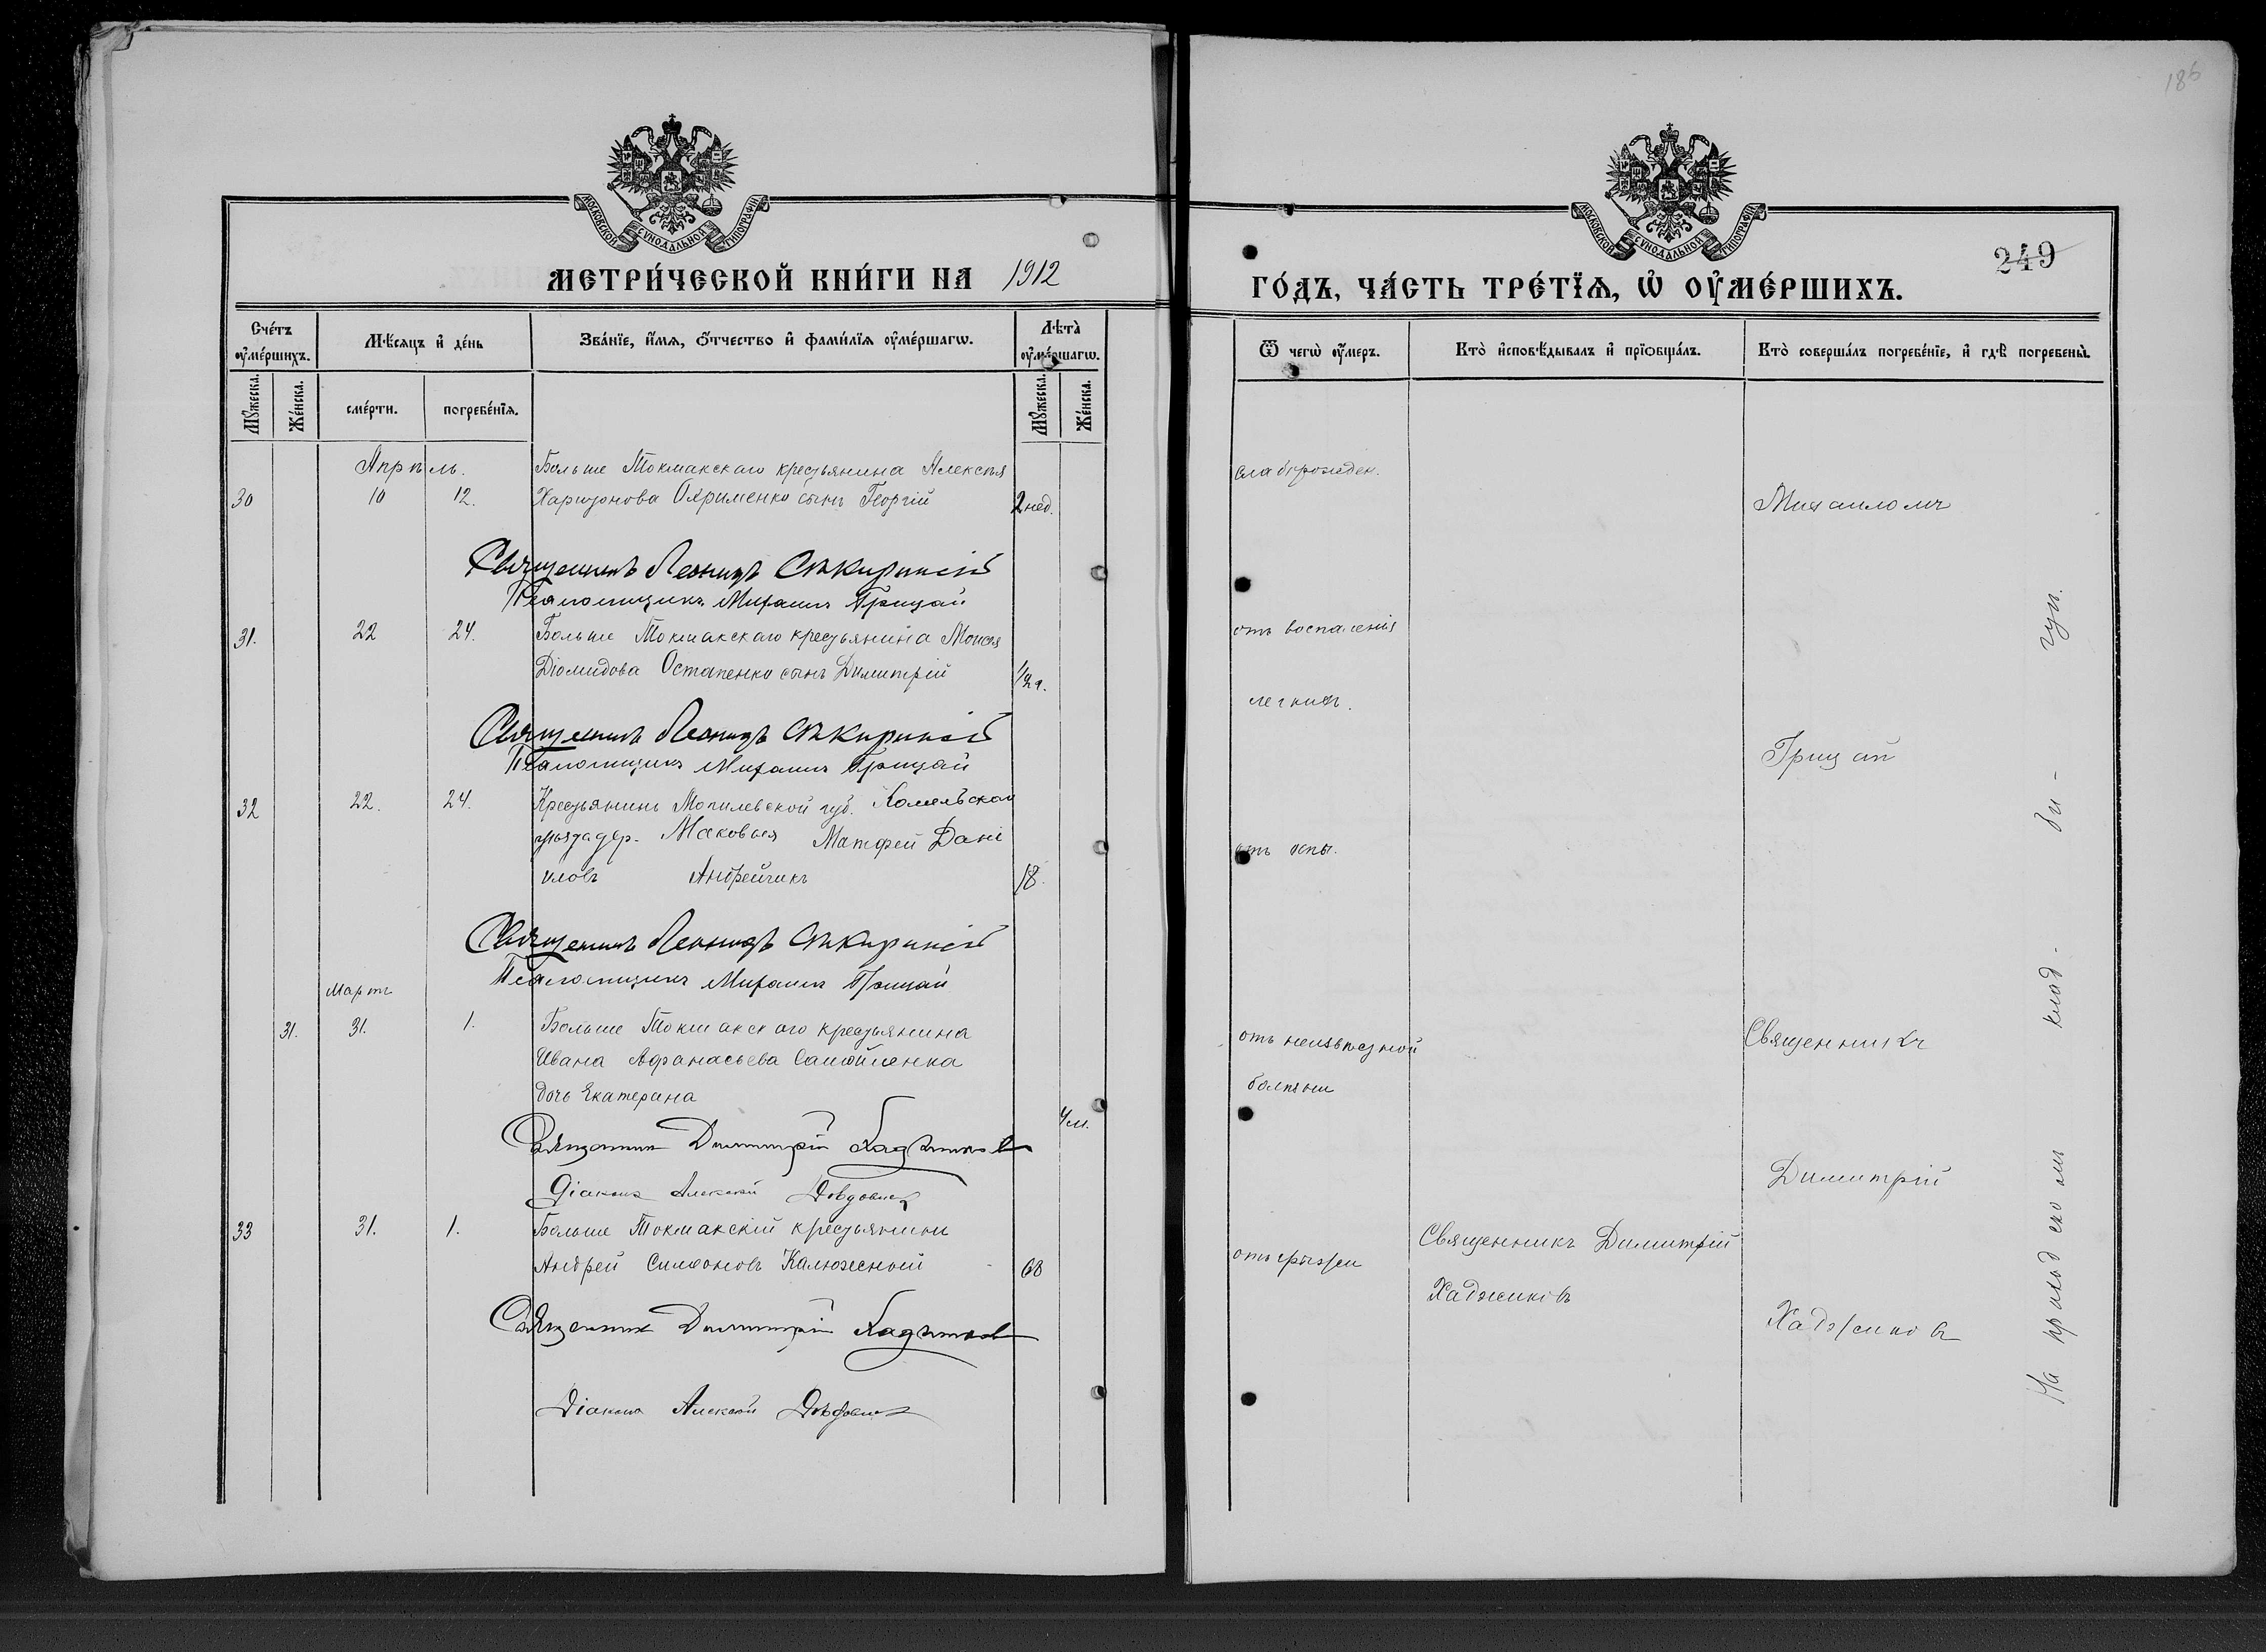 186
МОСКОВСКОЙ СѴНОДАЛЬНОЙ ТИПОГРАФІИ
МЕТРИ́ЧЕСКОЙ КНИ́ГИ НА 1912
Сче́тъ оу҆ме́ршихъ.
Мѣ́сяцъ и҆ де́нь
Зва́нїе, и҆́мѧ, ѻ҆́тчество и҆ фами́лїѧ оу҆ме́ршагѡ.
Лѣ́та оу҆ме́ршагѡ.
Мꙋ́жеска.
Же́нска.
сме́рти.
погребе́нїѧ.
Мꙋ́жеска.
Же́нска.
Апрѣль.
Больше Токмакскаго крестьянина Алексѣя
30 10 12. Харитонова Охрименко сынъ Георгій 2 нед.
Священникъ Леонидъ
Псаломщикъ Михаилъ Грицай
31. 22 24. Больше Токмакскаго крестьянина Моисея
Діомидова Остапенко сынъ Димитрій 1/2 г.
Священникъ Леонидъ
Псаломщикъ Михаилъ Грицай
32 22. 24. Крестьянинъ Могилевской губ. Гомельскаго
уѣзда дер. Маковья Матфей Дані
иловъ Андрейчикъ 18.
Священникъ Леонидъ
Псаломщикъ Михаилъ Грицай
Мартъ
31. 31. 1. Больше Токмакскаго крестьянина
Ивана Афанасьева Самойленка
дочь Екатерина 4 м.
Священникъ Димитрій Хаджиновъ
Діаконъ Алексѣй
33 31. 1. Больше Токмакскій крестьянинъ
Андрей Симеоновъ Калюжный 68
Священникъ Димитрій Хаджиновъ
Діаконъ Алексѣй
МОСКОВСКОЙ СѴНОДАЛЬНОЙ ТИПОГРАФІИ
249
ГО́ДЪ, ЧА́СТЬ ТРЕ́ТЇѦ, Ѡ҆ ОУ҆МЕ́РШИХЪ.
Ѿ чегѡ̀ оу҆́меръ.
Кто̀ и҆сповѣ́дывалъ и҆ прїѡбща́лъ.
Кто̀ соверша́лъ погребе́нїе, и҆ гдѣ̀ погребены̀.
слаборожден.
Михаиломъ
отъ воспаленія
легкихъ.
Грицай
отъ оспы.
отъ неизвѣстной
болѣзни
Священникъ
Димитрій
отъ грыжи
Священникъ Димитрій
Хаджиновъ
Хаджиновъ
На приходскомъ кладбищѣ.